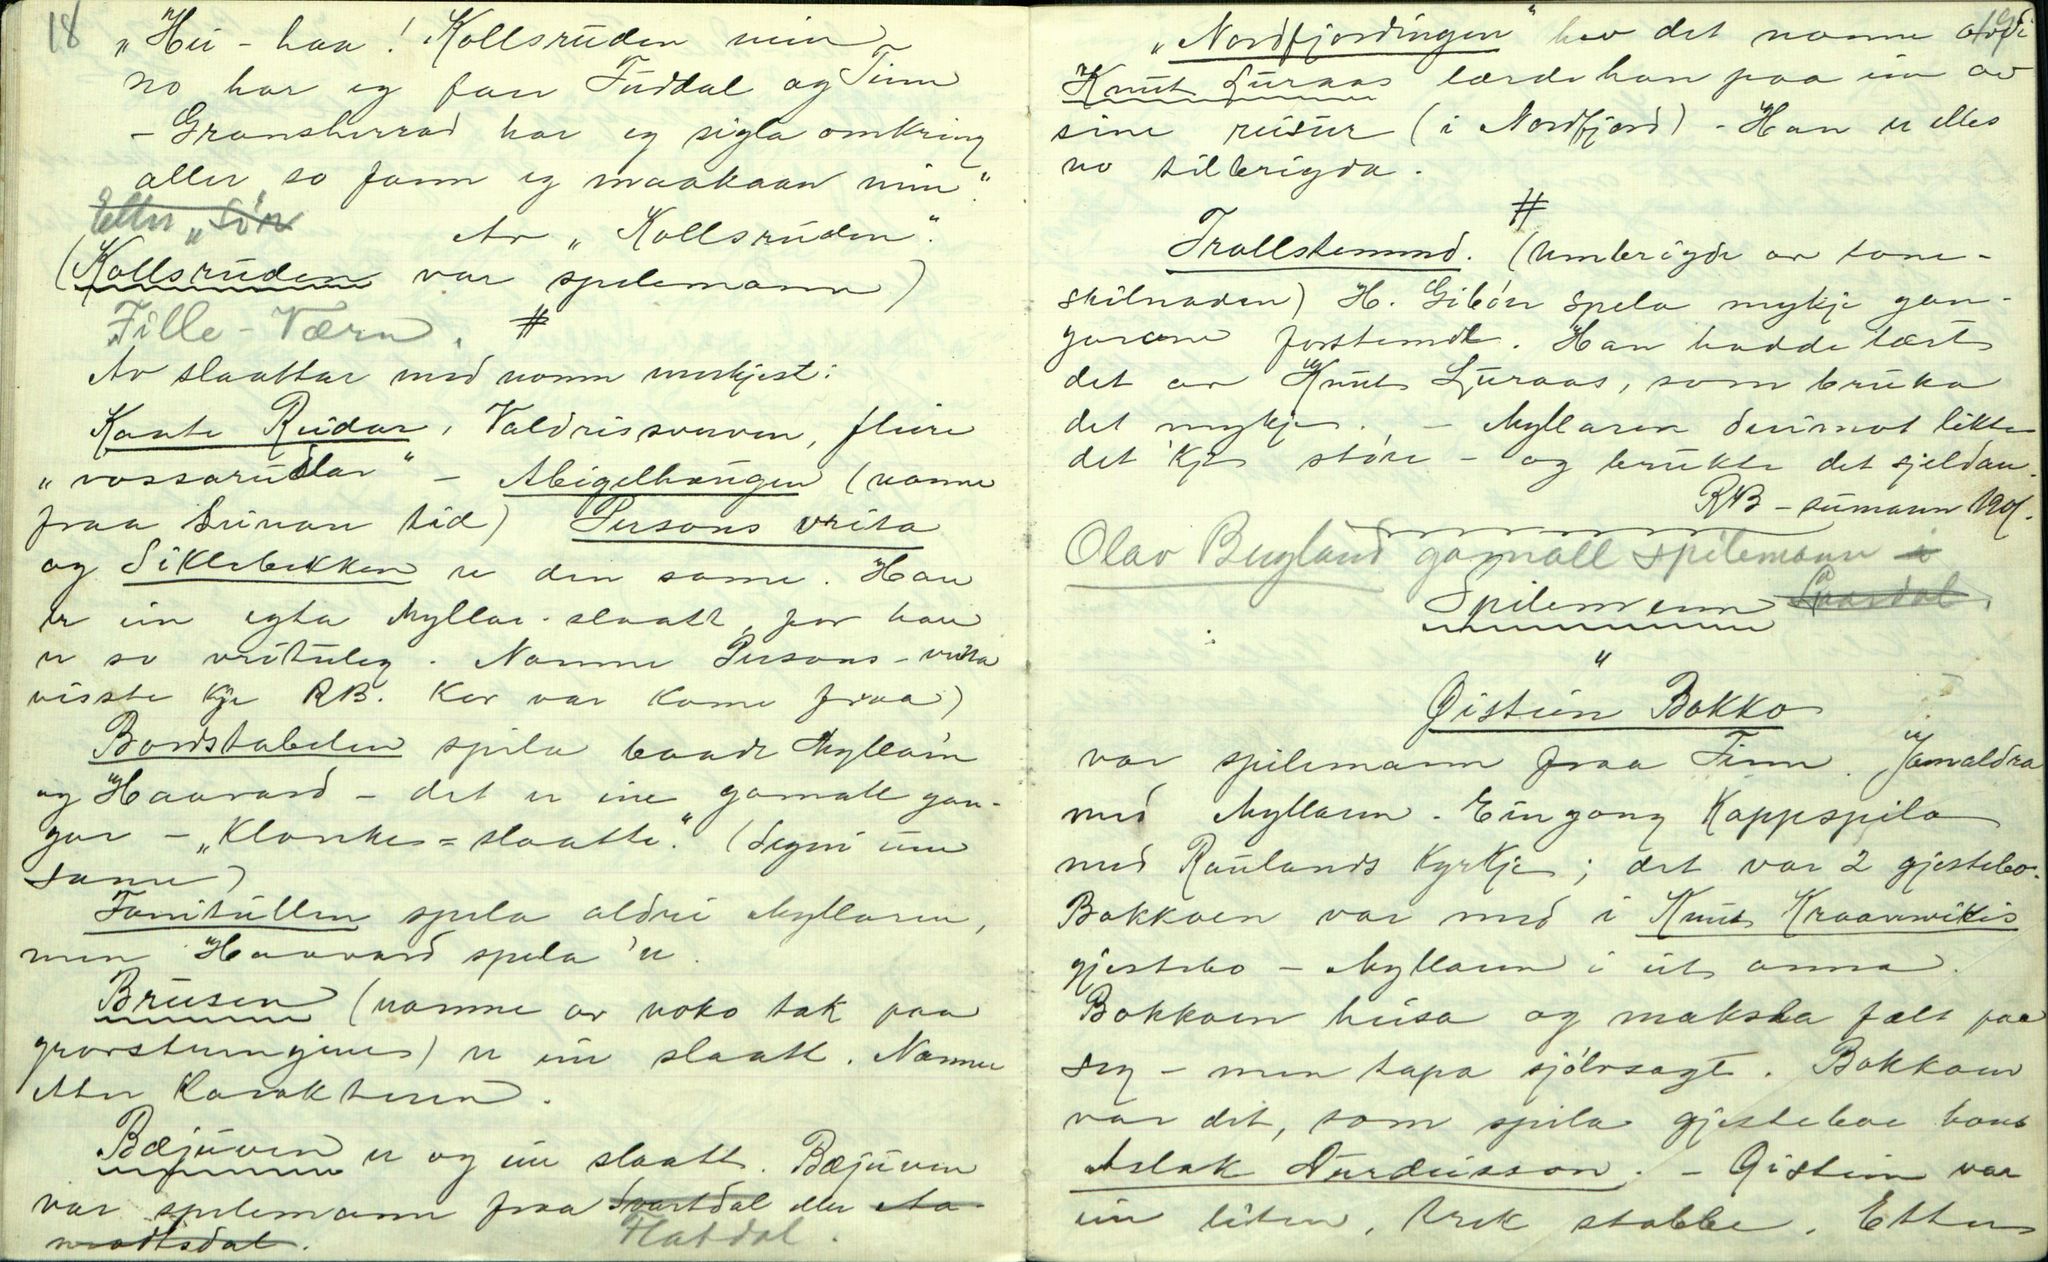 18
„Hu - haa! Kollsruden min
no har eg fari Tuddal og Tinn
- Gransherrad har eg sigla omkring
aller so fann eg maakaan min“.
Etter „Sön
Av „Kollsruden“.
(Kollsruden var spelemann)
Fille-Værn. #
Av slaattar med namn merkjest:
Kaate Reidar, Valdrissverven, fleire
„vossarudlar“ - Abigelhaugen (namne
fraa seinare tid) Persons vrita
og Siklebekken er den same. Han
er ein egta Myllar-slaatt, for han
er so vrituleg. Namne Persons-vrita
visste kje RB. kor var kome fraa)
Bordstabelen spila baade Myllarin
og Haavard - det er ein gamall gan-
gar - „Klonkes=slaatte“. (Segni um
same)
Fanitullen spela aldri Myllaren,
men Haavard spela 'n.
Brusen (namne av noko tak paa
grovstrengjene) er ein slaatt. Namne
etter karakteren.
Bæjuven er og ein slaatt. Bæjuven
var spelemann fraa Svartdal eller Aa-
modtsdal. Flatdal.
19
„Nordfjordingen“ hev det namne avdi
Knut Luraas lærde han paa ein av
sine reisur (i Nordfjord) - Han er elles
no tilbrigda.
#
Trollstemnd. (umbrigde av tone-
skilnaden) H. Gibøen spela mykje gan-
garane forstemdt. Han hadde lært
det av Knut Luraas, som bruka
det mykje. - Myllaren derimot likte
det kje större - og brukte det sjeldan.
RB - sumaren 1901.
Olav Bergland gamall spilemann i
Svartdal.
Spilemenn
"
Øistein Bakko
var spilemann fraa Tinn. Jamaldra
med Myllaren. Ein gong kappspila
med Raulands kyrkje; det var 2 gjestebo.
Bakkaen var med i Knut Kraamvikis
gjestebo - Myllaren i eit anna.
Bakkaen husa og maksla fælt paa
seg - men tapa sjölvsagt. Bakkaen
var det, som spila gjesteboe hans
Aslak Nurdeisson. - Øistein var
ein liten, brek stabbe. Etter